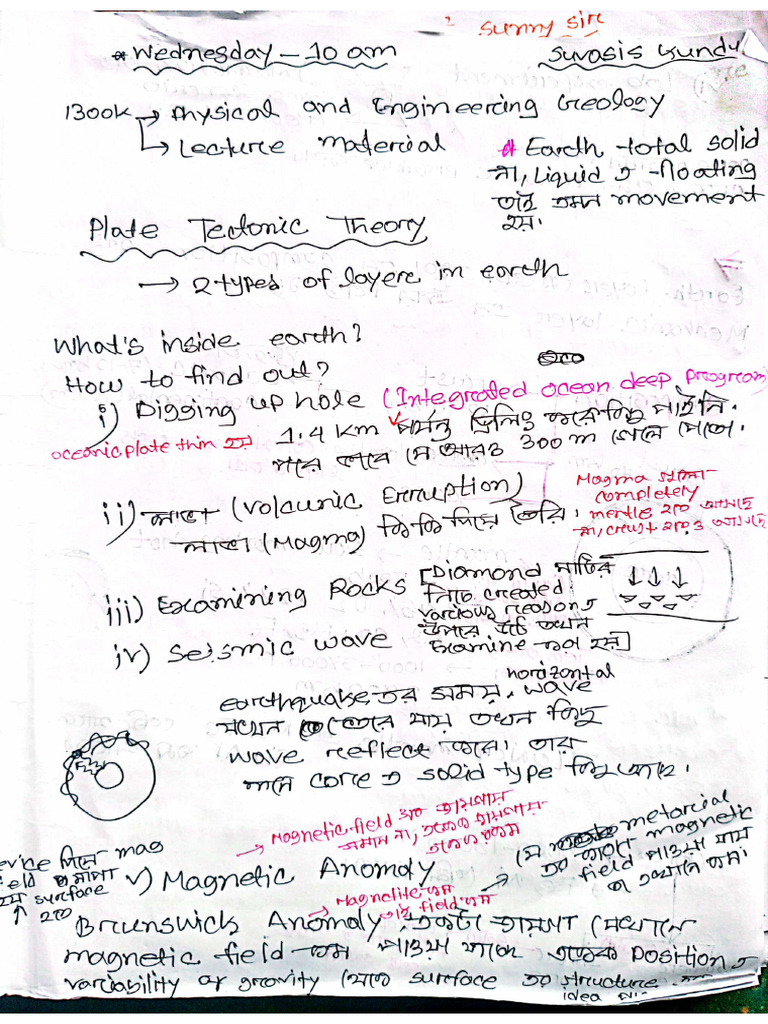 Sunny sir
* Wednesday – 10 am
Suvasis Kundu
Book → Physical and Engineering Geology
↳ Lecture material
* Earth total solid
না, Liquid এ floating
তাই এমন movement
হয়।
Plate Tectonic Theory
→ 2 types of layer in earth
What's inside earth?
How to find out?
i) Digging up hole (Integrated ocean deep program)
oceanic plate thin হয়
1.4 km পর্যন্ত ড্রিলিং করে কিছু পাইনি।
পরে বলে যে আরও 300 m গেলে পেতো।
ii) লাভা (Volcanic Erruption)
লাভা (Magma) কি কি দিয়ে তৈরি।
Magma
completely
mentle হতে আসছে
না, crust হতেও আসছে
iii) Examining Rocks [Diamond মাটির
নিচে created
various reason এ
উপরে উঠে তখন
Examine করা হয়]
iv) Seismic wave
horizontal
earthquake এর সময়, wave
যখন ভেতরে যায় তখন কিছু
wave reflect করে। তার
মানে core এ solid type কিছু আছে।
→ Magnetic field সব জায়গায়
সমান না, একেক জায়গায়
একেক রকম
device দিয়ে mag
field মাপা
হয় surface
হতে
v) Magnetic Anomaly
→ যে meterial
এর কারণে magnetic
field পাওয়া যায়
তা ওখানে কম।
→ Magnetite কম
তাই field কম
Brunswick Anomaly একটা জায়গা যেখানে
magnetic field কম পাওয়া যাচ্ছে একেক position এ
variability of gravity থেকে surface এর structure
idea